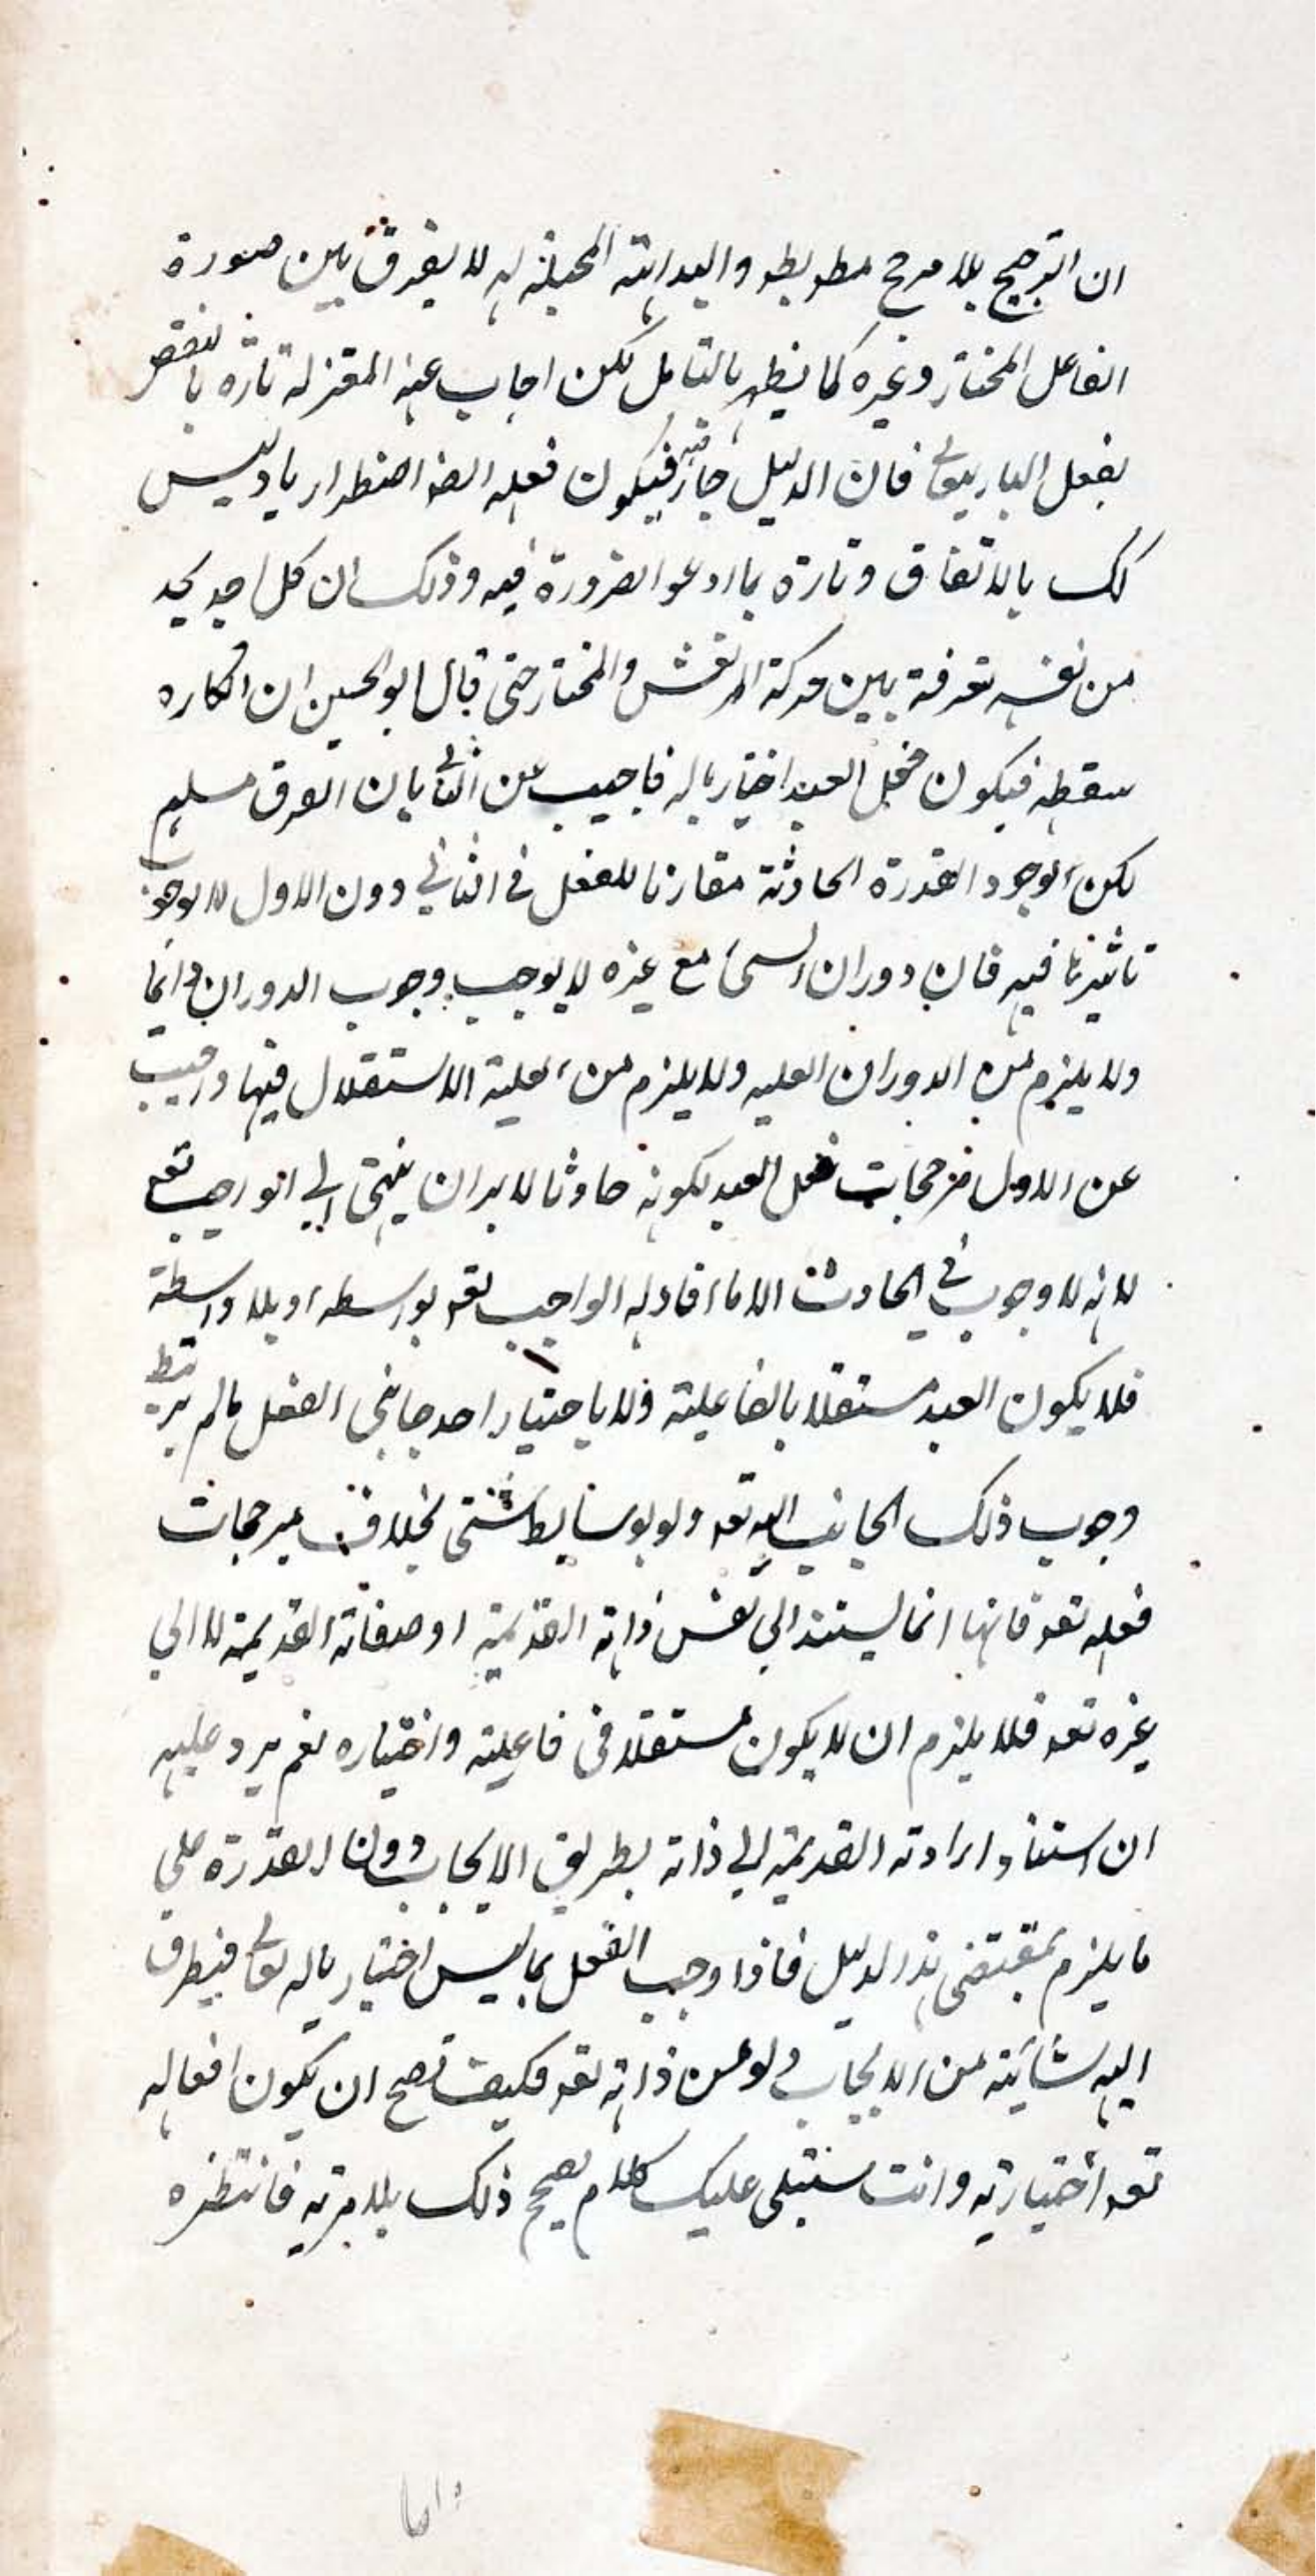 ان الترجيح بلا مرجح مط بط والبداهة المحيلة له لا يفرق بين صورة
الفاعل المختار وغيره كما يظهر بالتامل لكن اجاب عنه المعتزلة تارة بالنقض
بفعل الباري تعالى فان الدليل جار فيه فيكون فعله ايضا اضطراريا وليس
كك بالاتفاق وتارة بما ادعوا الضرورة فيه وذلك ان كل احد يجد
من نفسه تفرقة بين حركة المرتعش والمختار حتى قال ابو الحسين ان انكاره
سفسطه فيكون فعل العبد اختياريا له فاجيب عن الثاني بان الفرق مسلم
لكن لوجود القدرة الحادثة مقارنا للفعل في الثاني دون الاول لا لوجوب
تاثيرها فيه فان دوران الشئ مع غيره لا يوجب وجوب الدوران دائما
ولا يلزم من الدوران العليه ولا يلزم من العلية الاستقلال فيها واجيب
عن الاول مرجحات فعل العبد لكونه حادثا لا بد ان ينتهى الى الواجب تعه
لانه لا وجوب في الحادث الا ما افاد له الواجب تعه بواسطه او بلا واسطة
فلا يكون العبد مستقلا بالفاعلية ولا باختيار احد جانبى الفعل ما لم يرتبط
وجوب ذلك الجانب اليه تعه ولو بوسايط شتى بخلاف مرجحات
فعله تعه فانها انما يستند الى نفس ذاته القديمة او صفاته القديمة لا الى
غيره تعه فلا يلزم ان لا يكون مستقلا في فاعليته واختياره نعم يرد عليه
ان استناد ارادته القديمة الى ذاته بطريق الايجاب دون القدرة على
ما يلزم بمقتضى هذا الدليل فاذا وجب الفعل بما ليس اختياريا له تعالى فيطرق
اليه شائبة من الايجاب ولو من ذاته تعه فكيف تصح ان يكون افعاله
تعه اختيارية وانت ستتلى عليك كلام يصحح ذلك بلا مرية فانتظره
واما